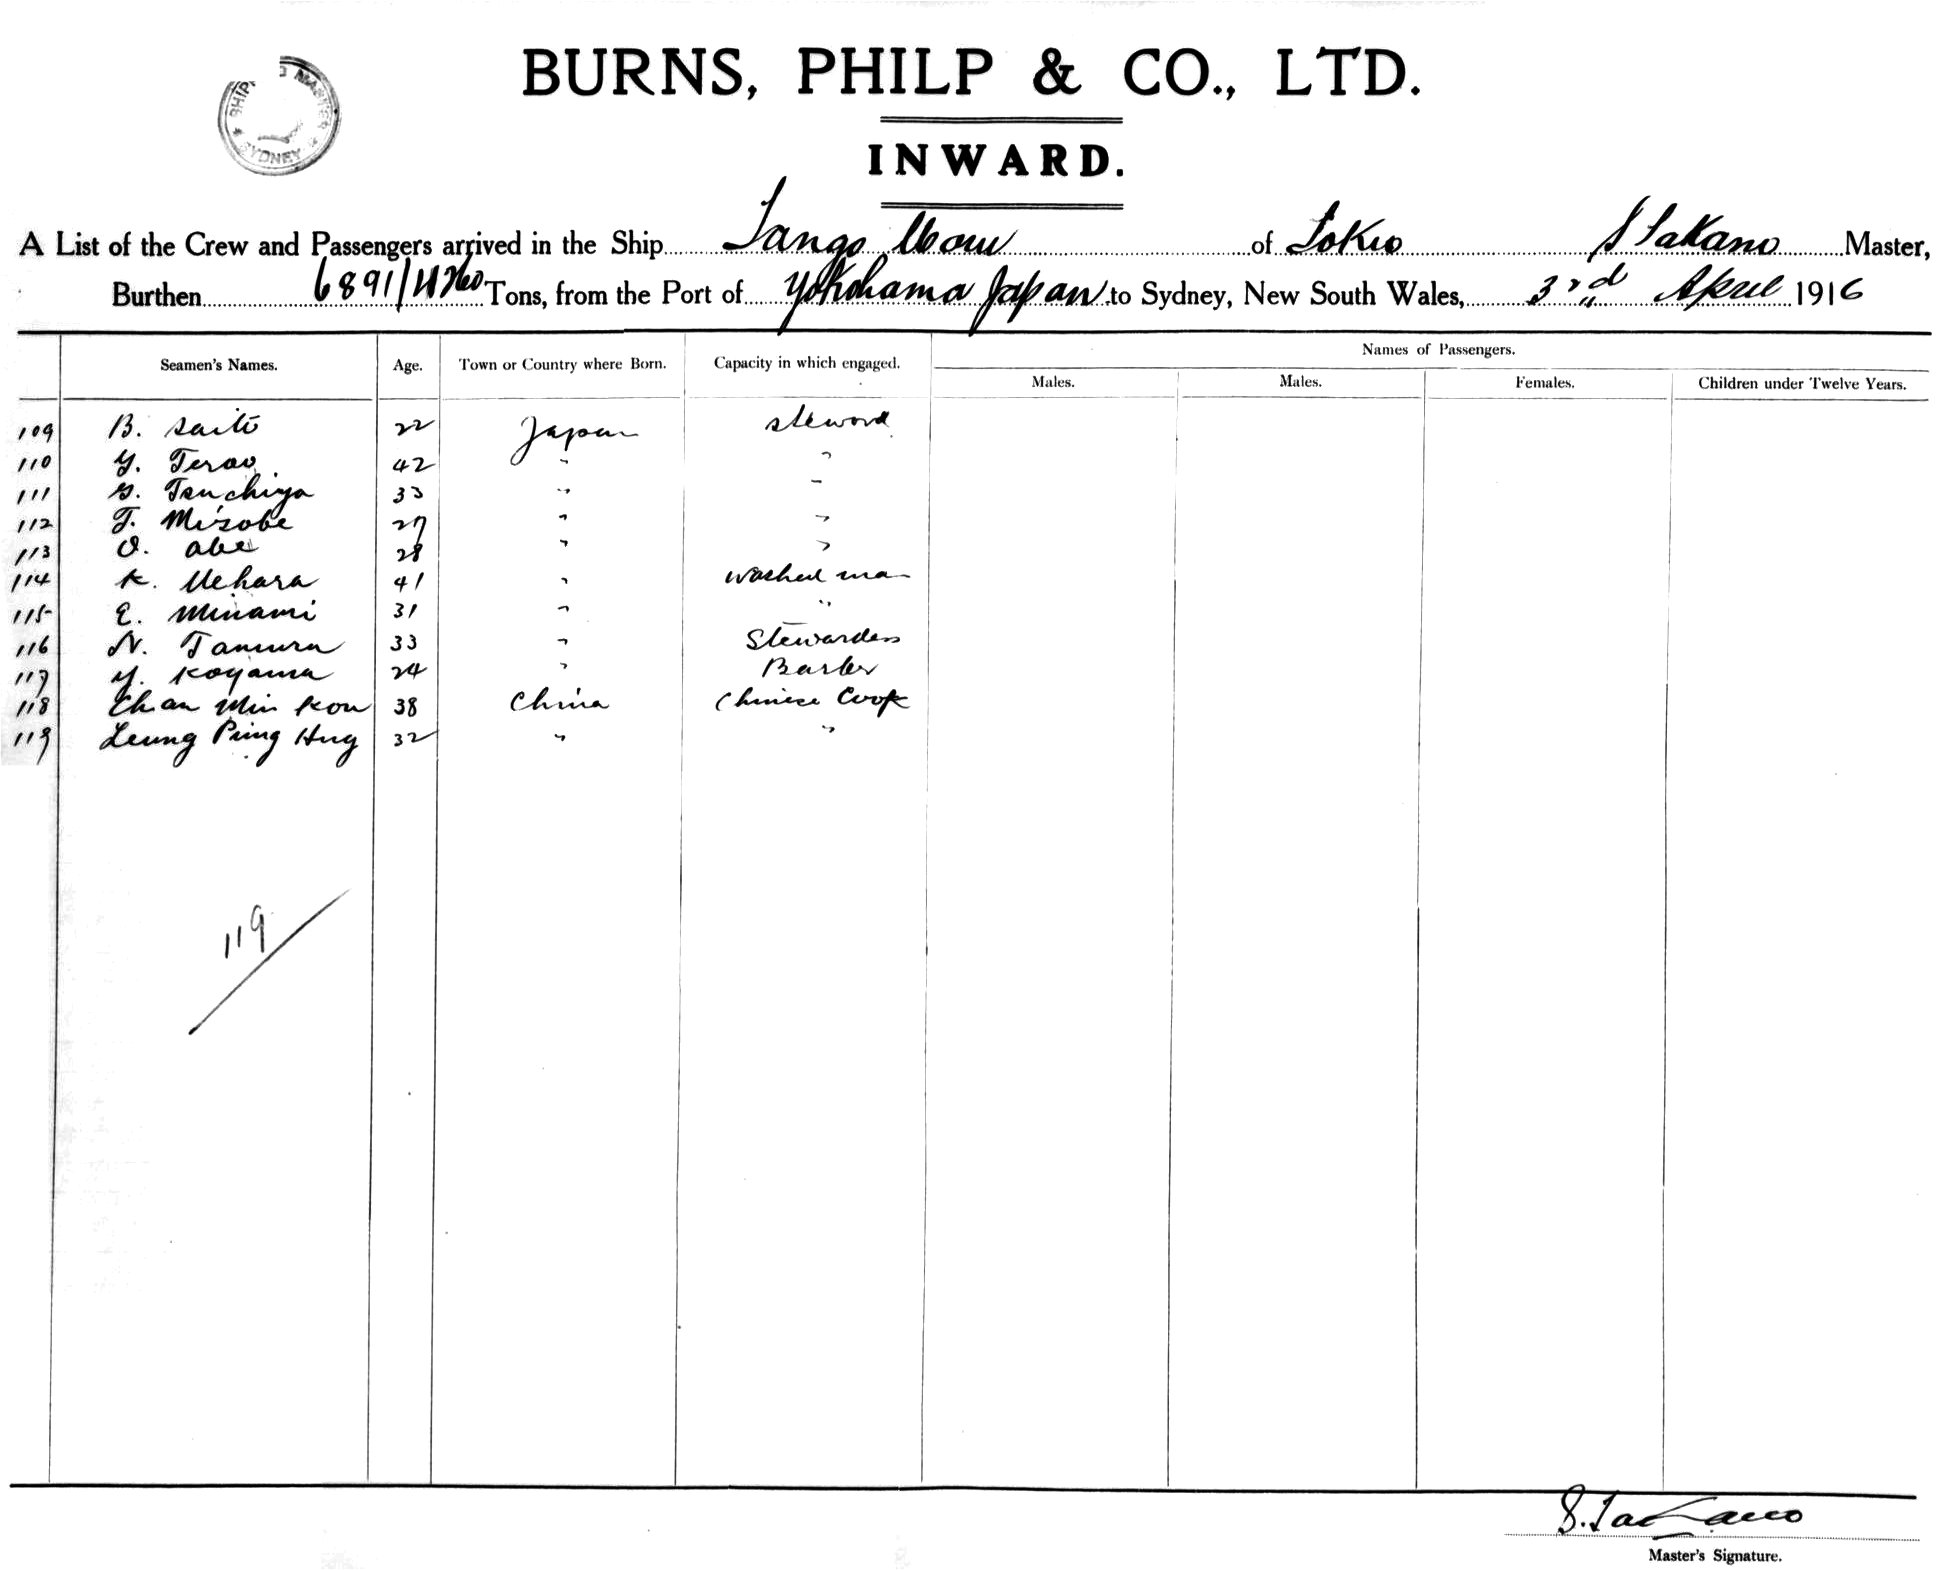 BURNS, PHILP & CO., LTD.
SHIP MASTER SYDNEY
INWARD.
A List of the Crew and Passengers arrived in the Ship Tango Maru of Tokio S Takano Master,
Burthen 6891/4260 Tons, from the Port of Yokohama Japan to Sydney, New South Wales, 3rd April 1916
Names of Passengers.
Seamen's Names. Age. Town or Country where Born. Capacity in which engaged. Males. Males. Females. Children under Twelve Years.
109 B. Saito 22 Japan Steward
110 Y. Terao 42 " "
111 G. Tsuchiya 33 " "
112 T. Misobe 27 " "
113 O. Abe 28 " "
114 K. Uehara 41 " washed man
115 E. Minami 31 " "
116 N. Tamura 33 " Stewardess
117 Y. Koyama 24 " Barber
118 Chan Min Kou 38 China Chinese Cook
119 Leung Ping Hug 32 " "
119
S. Takano
Master's Signature.